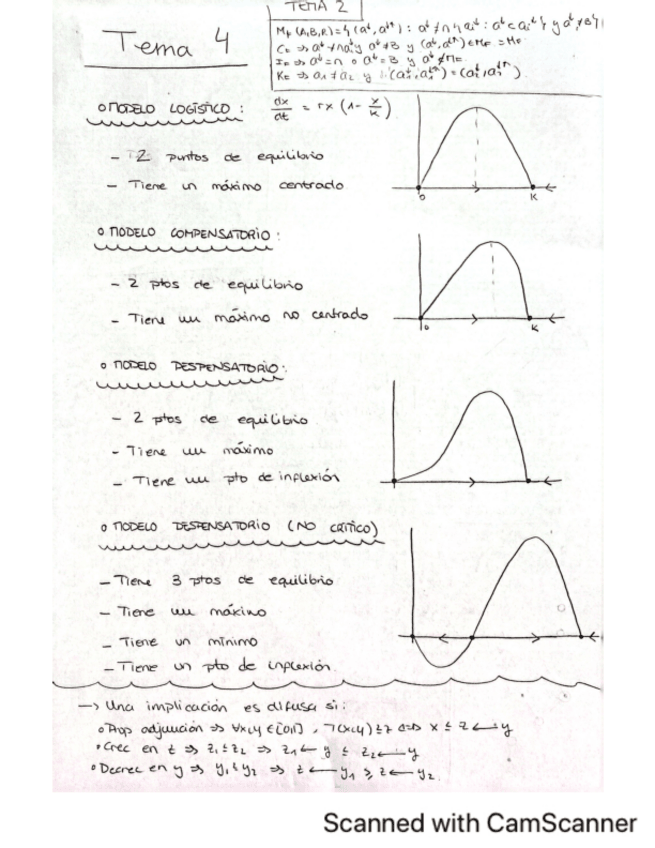 TEMA 2
Tema 4
o MODELO LOGÍSTICO : dx/dt = rx (1 - x/K)
- 2 puntos de equilibrio
- Tiene un máximo centrado
0 K
o MODELO COMPENSATORIO :
- 2 ptos de equilibrio
- Tiene un máximo no centrado
0 K
o MODELO DESPENSATORIO :
- 2 ptos de equilibrio
- Tiene un máximo
- Tiene un pto de inflexión
o MODELO DESPENSATORIO (NO CRÍTICO)
- Tiene 3 ptos de equilibrio
- Tiene un máximo
- Tiene un mínimo
- Tiene un pto de inflexión.
-> Una implicación es difusa si:
o Prop adjunción => ∀x,y ∈ [0,1] , T(x,y) ≤ z <=> x ≤ z ← y
o Crec en z => z1 ≤ z2 => z1 ← y ≤ z2 ← y
o Decrec en y => y1 ≤ y2 => z ← y1 ≥ z ← y2.
Scanned with CamScanner